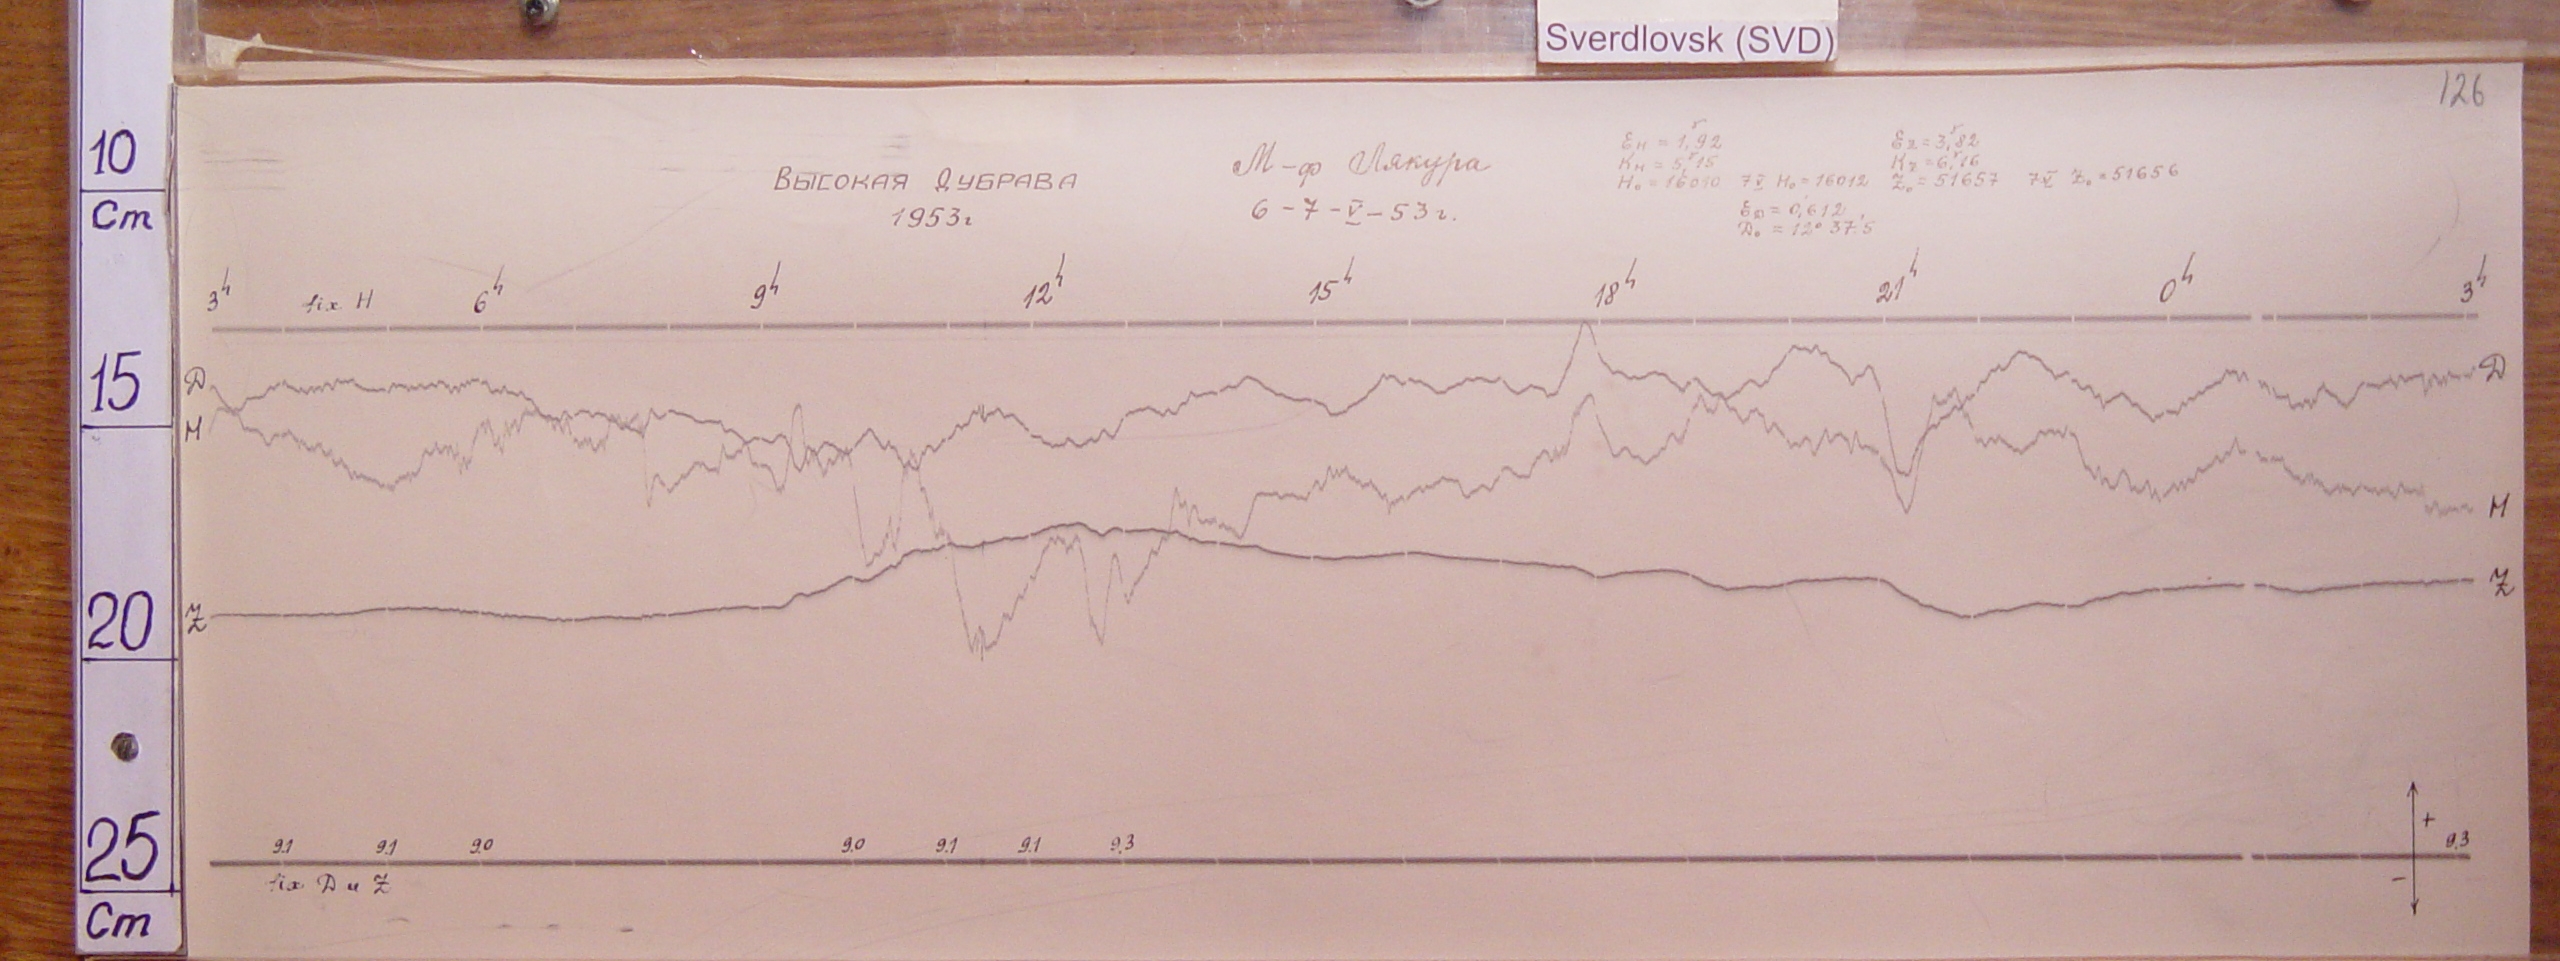 Sverdlovsk (SVD)
126
10
Cm
15
20
25
Cm
Высокая Дубрава
1953г
М-ф Лякура
6-7-V-53г.
EH = 1,γ92
KH = 5,γ15
H₀ = 16010 7V H₀ = 16012
EZ = 3,γ82
KZ = 6,γ16
Z₀ = 51657 7V Z₀ = 51656
EД = 0,′612
Д₀ = 12° 37,′5
3h fix H 6h 9h 12h 15h 18h 21h 0h 3h
Д Д
H H
Z Z
9.1 9.1 9.0 9.0 9.1 9.1 9.3 9.3
fix Д и Z
+
-